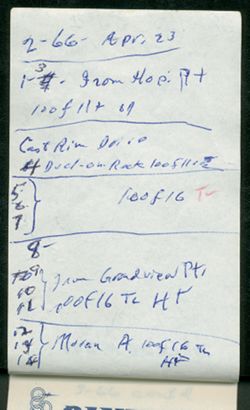 2-66- Apr. 23
1-3 From Hopi Pt
100 f 11
East Rim Drive
4 Duck-on-Rock 100 f 11
5
6
7
100 f 16 Tu
8-
9
10
11
From Grandview Pt
100 f 16 Tu HF
12
13
14
Moran A. 100 f 16 Tu
HF